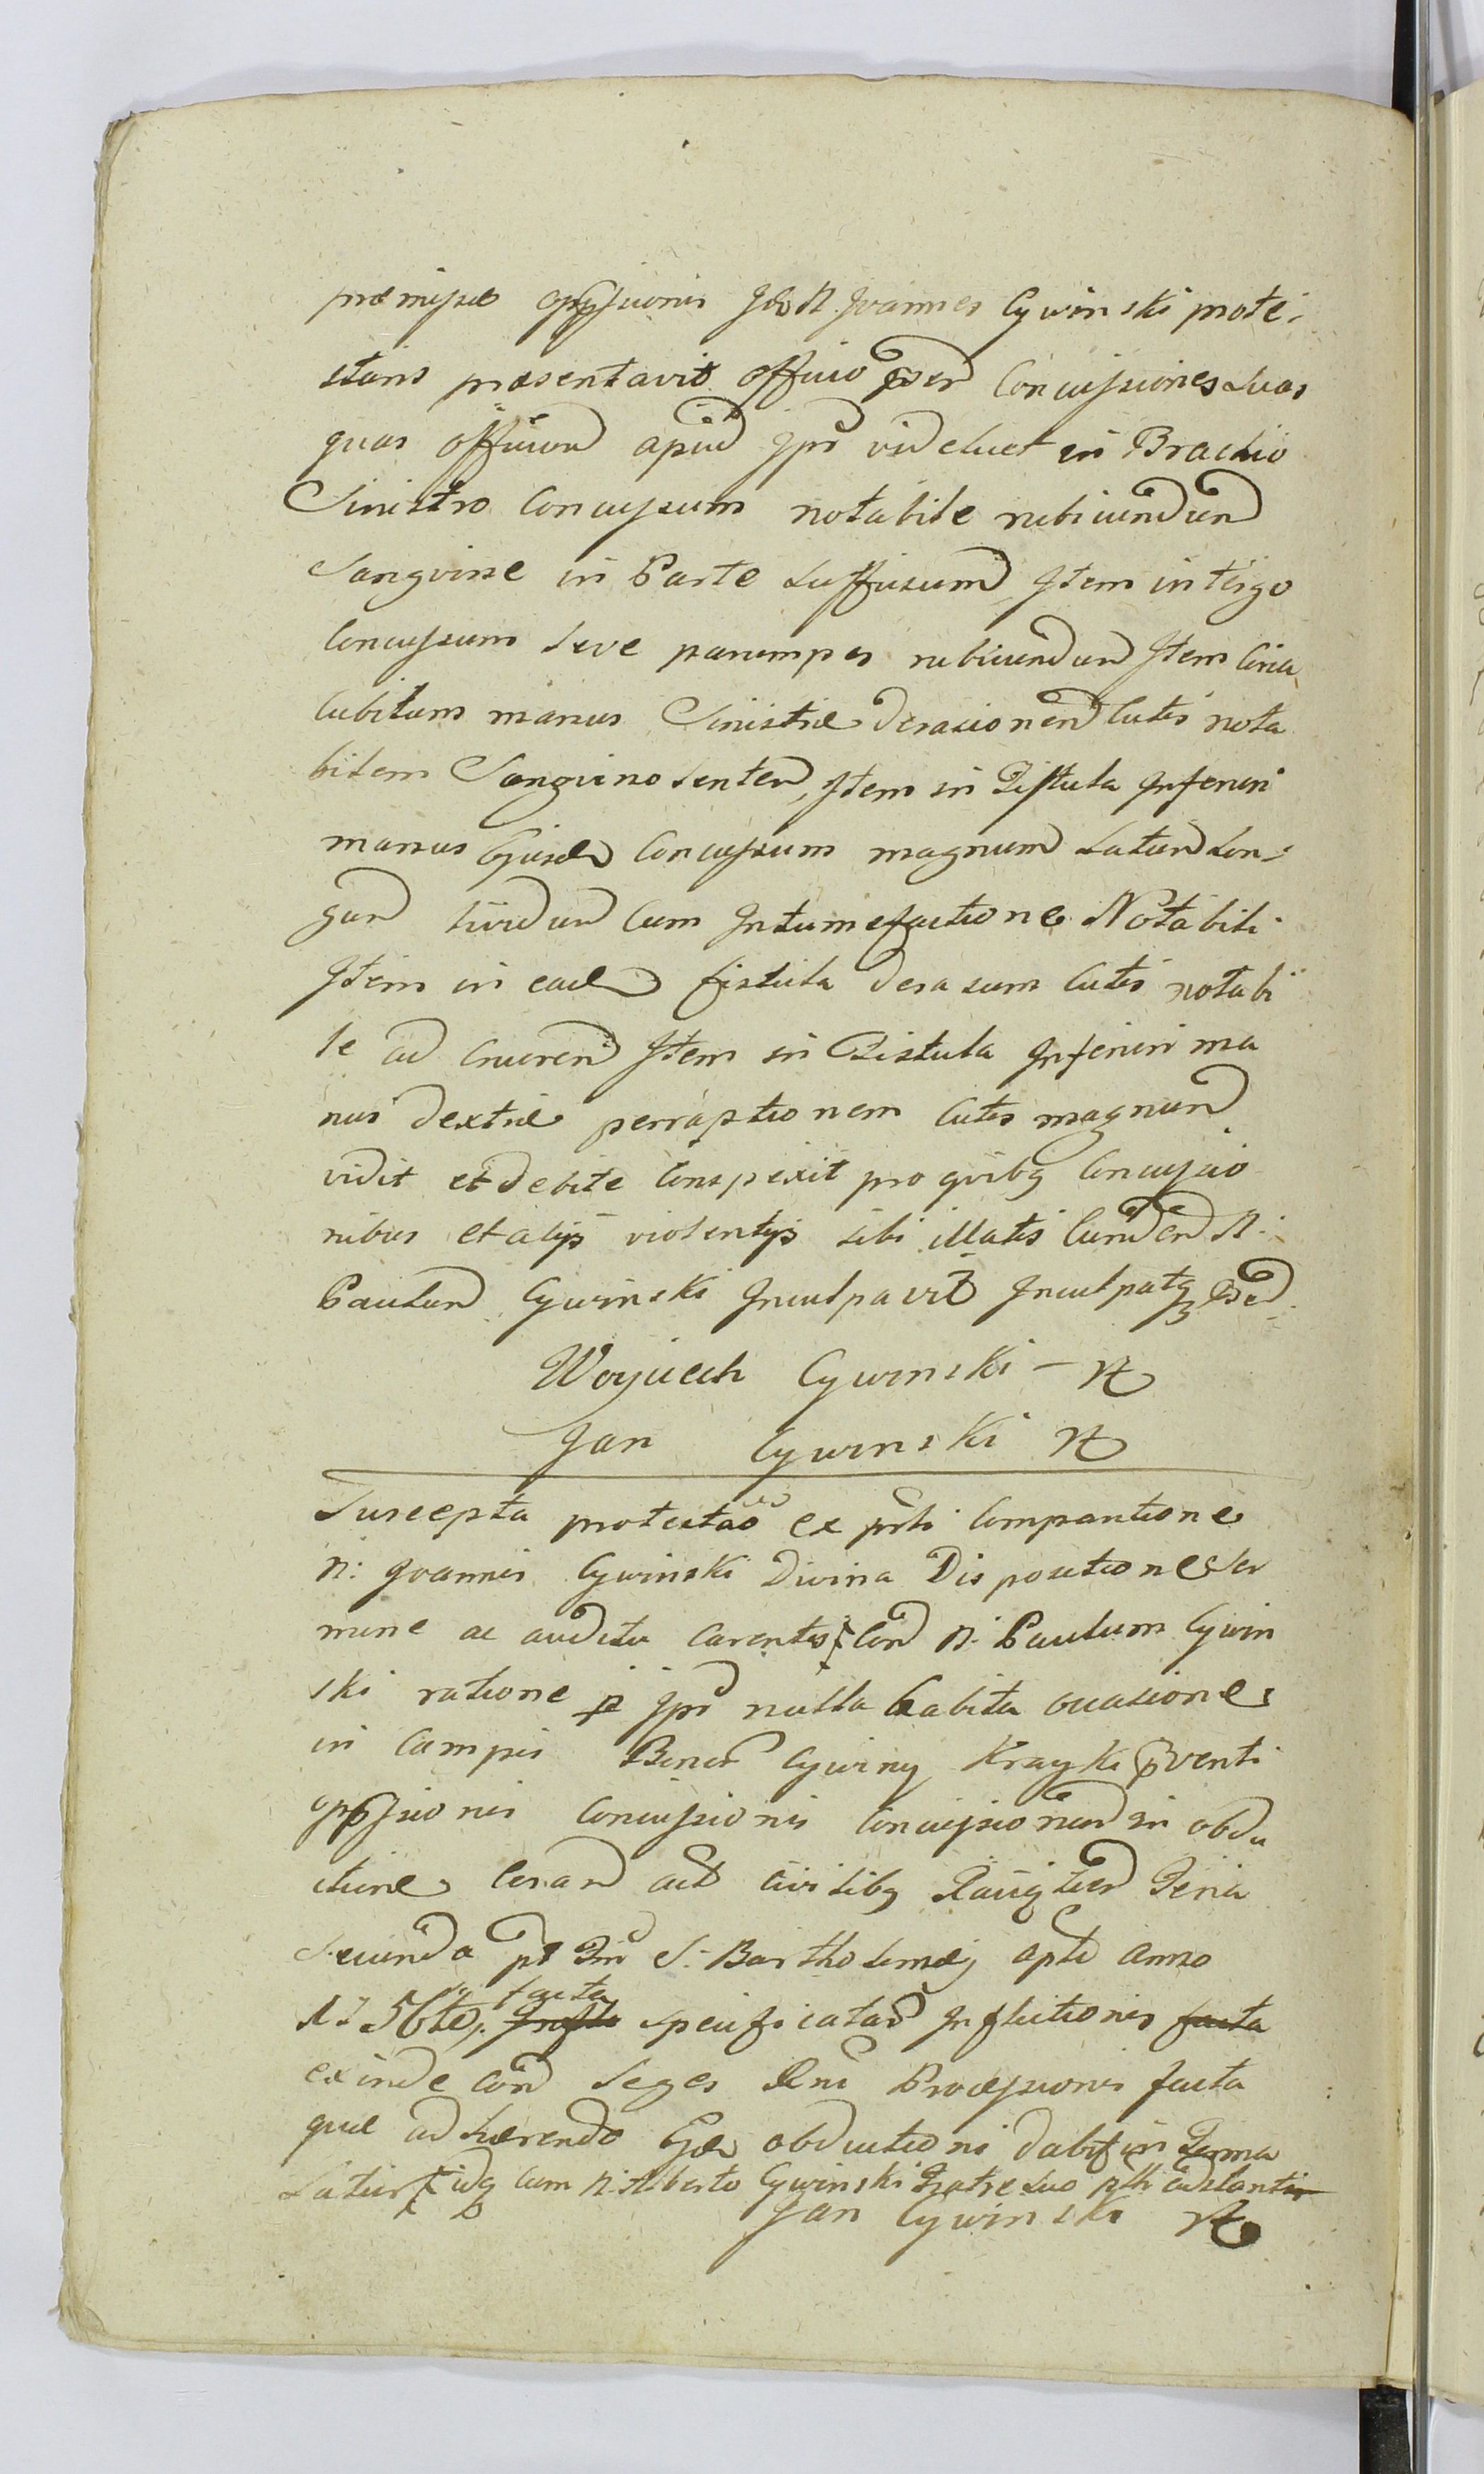 præmissæ oppressionis Idem N. Joannes Cywinski prote-
stans præsentavit officio pnti Concussiones suas
quas officium apud ipm videlicet in Brachio
Sinistro Concussum notabile rubicundum
Sangvine in Parte suffusum Item in tergo
Concussum leve parumper rubicundum Item Circa
Cubitum manus Sinistræ Derasionem Cutis nota
bilem Sangvinolentem, Item in Fistula Inferiori
manus Ejusdem Concussum magnum Latum Lon-
gum lividum Cum Intumefactione Notabili
Item in eadem fistula derasum Cutis notabi
le ad Cruorem Item in Fistula Inferiori ma
nus dextræ perraptionem Cutis magnam
vidit et debite Conspexit pro qvibq Concussio
nibus et alijs violentijs sibi illatis Eundem N.
Paulum Cywinski Inculpavit Inculpatqz
Woyciech Cywinski - 
Jan Cywinski
Suscepta protestao ex psti Comparitione
N: Joannis Cywinski Divina Dispositione Ser
mone ac auditu Carentis Con N. Paulum Cywin
ski ratione p ipm nulla habita occasione
in Campis Bonor Cywiny Krayki pventi
oppssionis Concussionis Concussionum in obdu
ctione Coram act Civilibq Feria
Secunda pt Fm S. Bartholomæj Apli Anno
1756to facta specificatar Inflictionis facta
exinde Con leges Rni Processionis facta
quæ adhærendo Ejdem obductioni dabit in Forma
Latiori idq Cum N. Alberto Cywinski Fratre suo psti adstanti
Jan Cywinski